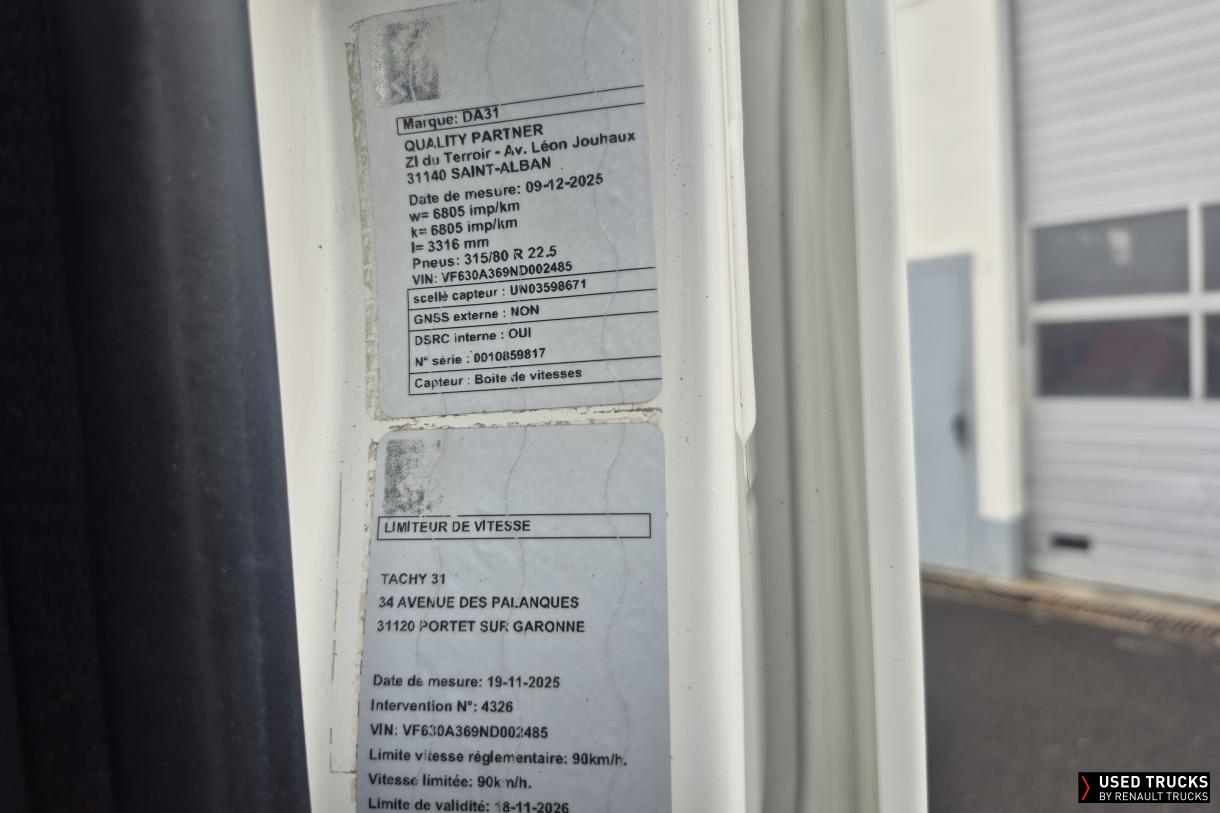 Marque: DA31
QUALITY PARTNER
ZI du Terroir - Av. Léon Jouhaux
31140 SAINT-ALBAN
Date de mesure: 09-12-2025
w= 6805 imp/km
k= 6805 imp/km
l= 3316 mm
Pneus: 315/80 R 22.5
VIN: VF630A369ND002485
scellé capteur : UN03598671
GNSS externe : NON
DSRC interne : OUI
N° série : 0010859817
Capteur : Boite de vitesses
LIMITEUR DE VITESSE
TACHY 31
34 AVENUE DES PALANQUES
31120 PORTET SUR GARONNE
Date de mesure: 19-11-2025
Intervention N°: 4326
VIN: VF630A369ND002485
Limite vitesse réglementaire: 90km/h.
Vitesse limitée: 90km/h.
Limite de validité: 18-11-2026
USED TRUCKS
BY RENAULT TRUCKS